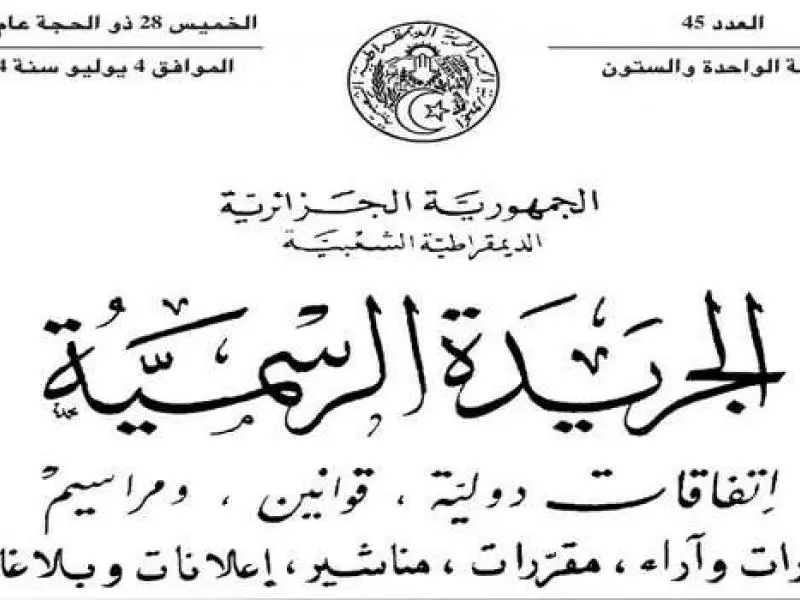 العدد 45
ة الواحدة والستون
الخميس 28 ذو الحجة عام
الموافق 4 يوليو سنة 4
الجمهوريّة الجزائريّة
الديمقراطيّة الشعبيّة
الجريدة الرسميّة
اتفاقات دوليّة ، قوانين ، ومراسيم
رات وآراء ، مقرّرات ، مناشير ، إعلانات وبلاغا